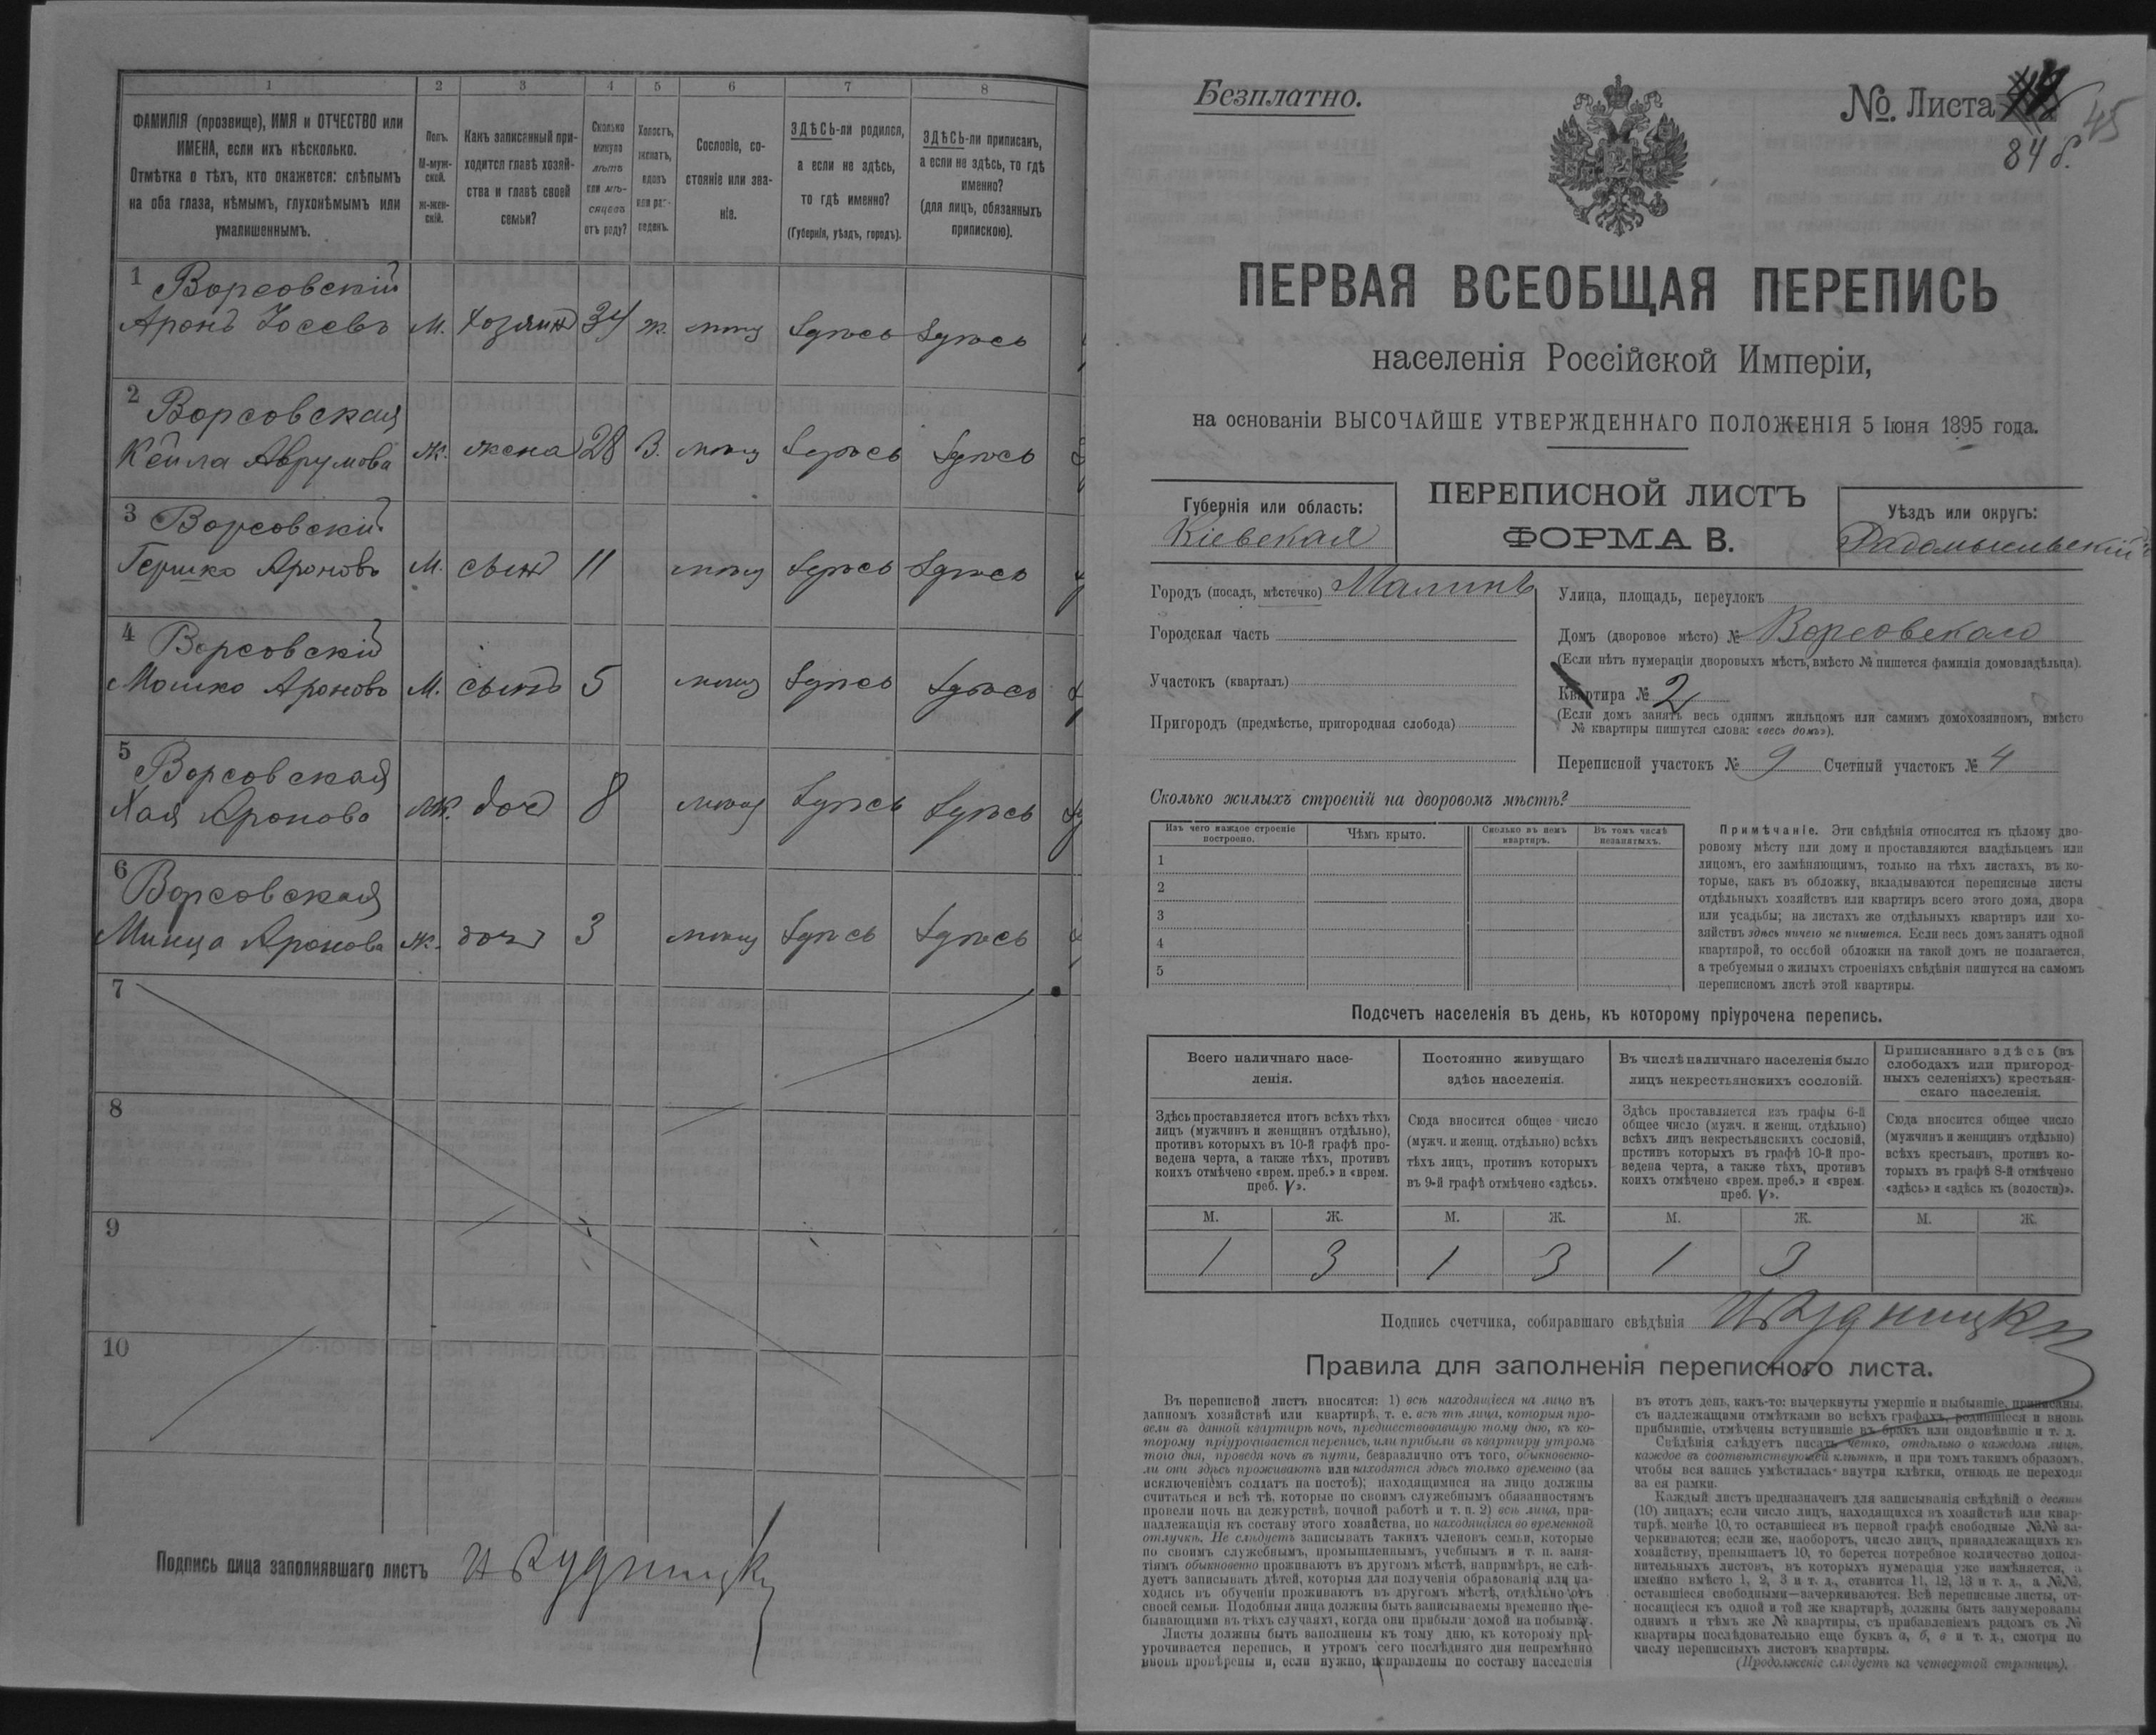 1 2 3 4 5 6 7 8
ФАМИЛІЯ (прозвище), ИМЯ и ОТЧЕСТВО или
ИМЕНА, если ихъ нѣсколько.
Отмѣтка о тѣхъ, кто окажется: слѣпымъ
на оба глаза, нѣмымъ, глухонѣмымъ или
умалишеннымъ.
Полъ.
М-муж-
ской.
Ж-жен-
скій.
Какъ записанный при-
ходится главѣ хозяй-
ства и главѣ своей
семьи?
Сколько
минуло
лѣтъ
или мѣ-
сяцевъ
отъ роду?
Холостъ,
женатъ,
вдовъ
или раз-
веденъ.
Сословіе, со-
стояніе или зва-
ніе.
ЗДѢСЬ-ли родился,
а если не здѣсь,
то гдѣ именно?
(Губернія, уѣздъ, городъ).
ЗДѢСЬ-ли приписанъ,
а если не здѣсь, то гдѣ
именно?
(для лицъ, обязанныхъ
припискою).
1 Ворсовскій
Аронъ Іосевъ М. хозяинъ 34 ж. мѣщ здѣсь здѣсь
2 Ворсовская
Кейла Аврумова ж. жена 28 З. мѣщ здѣсь здѣсь
3 Ворсовскій
Гершко Ароновъ М. сынъ 11 мѣщ здѣсь здѣсь
4 Ворсовскій
Мошко Ароновъ М. сынъ 5 мѣщ здѣсь здѣсь
5 Ворсовская
Хая Аронова ж. доч 8 мѣщ здѣсь здѣсь
6 Ворсовская
Минца Аронова ж. доч 3 мѣщ здѣсь здѣсь
7
8
9
10
Подпись лица заполнявшаго листъ И Рудницкій
Безплатно.
№. Листа 45
84 б.
ПЕРВАЯ ВСЕОБЩАЯ ПЕРЕПИСЬ
населенія Россійской Имперіи,
на основаніи ВЫСОЧАЙШЕ УТВЕРЖДЕННАГО ПОЛОЖЕНІЯ 5 Іюня 1895 года.
ПЕРЕПИСНОЙ ЛИСТЪ
ФОРМА В.
Губернія или область:
Кіевская
Уѣздъ или округъ:
Радомысльскій
Городъ (посадъ, мѣстечко) Малинъ
Городская часть
Участокъ (кварталъ)
Пригородъ (предмѣстье, пригородная слобода)
Улица, площадь, переулокъ
Домъ (дворовое мѣсто) № Ворсовскаго
(Если нѣтъ нумераціи дворовыхъ мѣстъ, вмѣсто № пишется фамилія домовладѣльца).
Квартира № 2
(Если домъ занятъ весь однимъ жильцомъ или самимъ домохозяиномъ, вмѣсто
№ квартиры пишутся слова: «весь домъ»).
Переписной участокъ № 9 Счетный участокъ № 4
Сколько жилыхъ строеній на дворовомъ мѣстѣ?
Изъ чего каждое строеніе
построено.
Чѣмъ крыто.
Сколько въ немъ
квартиръ.
Въ томъ числѣ
незанятыхъ.
1
2
3
4
5
Примѣчаніе. Эти свѣдѣнія относятся къ цѣлому дво-
ровому мѣсту или дому и проставляются владѣльцемъ или
лицомъ, его замѣняющимъ, только на тѣхъ листахъ, въ ко-
торые, какъ въ обложку, вкладываются переписные листы
отдѣльныхъ хозяйствъ или квартиръ всего этого дома, двора
или усадьбы; на листахъ же отдѣльныхъ квартиръ или хо-
зяйствъ здѣсь ничего не пишется. Если весь домъ занятъ одной
квартирой, то особой обложки на такой домъ не полагается,
а требуемыя о жилыхъ строеніяхъ свѣдѣнія пишутся на самомъ
переписномъ листѣ этой квартиры.
Подсчетъ населенія въ день, къ которому пріурочена перепись.
Всего наличнаго насе-
ленія.
Здѣсь проставляется итогъ всѣхъ тѣхъ
лицъ (мужчинъ и женщинъ отдѣльно),
противъ которыхъ въ 10-й графѣ про-
ведена черта, а также тѣхъ, противъ
коихъ отмѣчено «врем. преб.» и «врем.
преб. V».
Постоянно живущаго
здѣсь населенія.
Сюда вносится общее число
(мужч. и женщ. отдѣльно) всѣхъ
тѣхъ лицъ, противъ которыхъ
въ 9-й графѣ отмѣчено «здѣсь».
Въ числѣ наличнаго населенія было
лицъ некрестьянскихъ сословій.
Здѣсь проставляется изъ графы 6-й
общее число (мужч. и женщ. отдѣльно)
всѣхъ лицъ некрестьянскихъ сословій,
противъ которыхъ въ графѣ 10-й про-
ведена черта, а также тѣхъ, противъ
коихъ отмѣчено «врем. преб.» и «врем.
преб. V».
Приписаннаго здѣсь (въ
слободахъ или пригород-
ныхъ селеніяхъ) крестьян-
скаго населенія.
Сюда вносится общее число
(мужчинъ и женщинъ отдѣльно)
всѣхъ крестьянъ, противъ ко-
торыхъ въ графѣ 8-й отмѣчено
«здѣсь» и «здѣсь къ (волости)».
М. Ж. М. Ж. М. Ж. М. Ж.
1 3 1 3 1 3
Подпись счетчика, собиравшаго свѣдѣнія И Рудницкій
Правила для заполненія переписного листа.
Въ переписной листъ вносятся: 1) всѣ находящіеся на лицо въ
данномъ хозяйствѣ или квартирѣ, т. е. всѣ тѣ лица, которыя про-
вели въ данной квартирѣ ночь, предшествовавшую тому дню, къ ко-
торому пріурочивается перепись, или прибыли въ квартиру утромъ
того дня, проведя ночь въ пути, безразлично отъ того, обыкновенно-
ли они здѣсь проживаютъ или находятся здѣсь только временно (за
исключеніемъ солдатъ на постоѣ); находящимися на лицо должны
считаться и всѣ тѣ, которые по своимъ служебнымъ обязанностямъ
провели ночь на дежурствѣ, ночной работѣ и т. п. 2) всѣ лица, при-
надлежащія къ составу этого хозяйства, но находящіяся во временной
отлучкѣ. Не слѣдуетъ записывать такихъ членовъ семьи, которые
по своимъ служебнымъ, промышленнымъ, учебнымъ и т. п. заня-
тіямъ обыкновенно проживаютъ въ другомъ мѣстѣ, напримѣръ, не слѣ-
дуетъ записывать дѣтей, которыя для полученія образованія или на-
ходясь въ обученіи проживаютъ въ другомъ мѣстѣ, отдѣльно отъ
своей семьи. Подобныя лица должны быть записываемы временно пре-
бывающими въ тѣхъ случаяхъ, когда они прибыли домой на побывку.
Листы должны быть заполнены къ тому дню, къ которому прі-
урочивается перепись, и утромъ сего послѣдняго дня непремѣнно
вновь провѣрены и, если нужно, исправлены по составу населенія
въ этотъ день, какъ-то: вычеркнуты умершіе и выбывшіе, приписаны,
съ надлежащими отмѣтками во всѣхъ графахъ, родившіеся и вновь
прибывшіе, отмѣчены вступившіе въ бракъ или овдовѣвшіе и т. д.
Свѣдѣнія слѣдуетъ писать четко, отдѣльно о каждомъ лицѣ,
каждое въ соотвѣтствующей клѣткѣ, и при томъ такимъ образомъ,
чтобы вся запись умѣстилась внутри клѣтки, отнюдь не переходя
за ея рамки.
Каждый листъ предназначенъ для записыванія свѣдѣній о десяти
(10) лицахъ; если число лицъ, находящихся въ хозяйствѣ или квар-
тирѣ, менѣе 10, то оставшіеся въ первой графѣ свободные №№ за-
черкиваются; если же, наоборотъ, число лицъ, принадлежащихъ къ
хозяйству, превышаетъ 10, то берется потребное количество допол-
нительныхъ листовъ, въ которыхъ нумерація уже измѣняется, а
именно вмѣсто 1, 2, 3 и т. д., ставится 11, 12, 13 и т. д., а №№,
оставшіеся свободными—зачеркиваются. Всѣ переписные листы, от-
носящіеся къ одной и той же квартирѣ, должны быть занумерованы
однимъ и тѣмъ же № квартиры, съ прибавленіемъ рядомъ съ №
квартиры послѣдовательно еще буквъ а, б, в и т. д., смотря по
числу переписныхъ листовъ квартиры.
(Продолженіе слѣдуетъ на четвертой страницѣ).